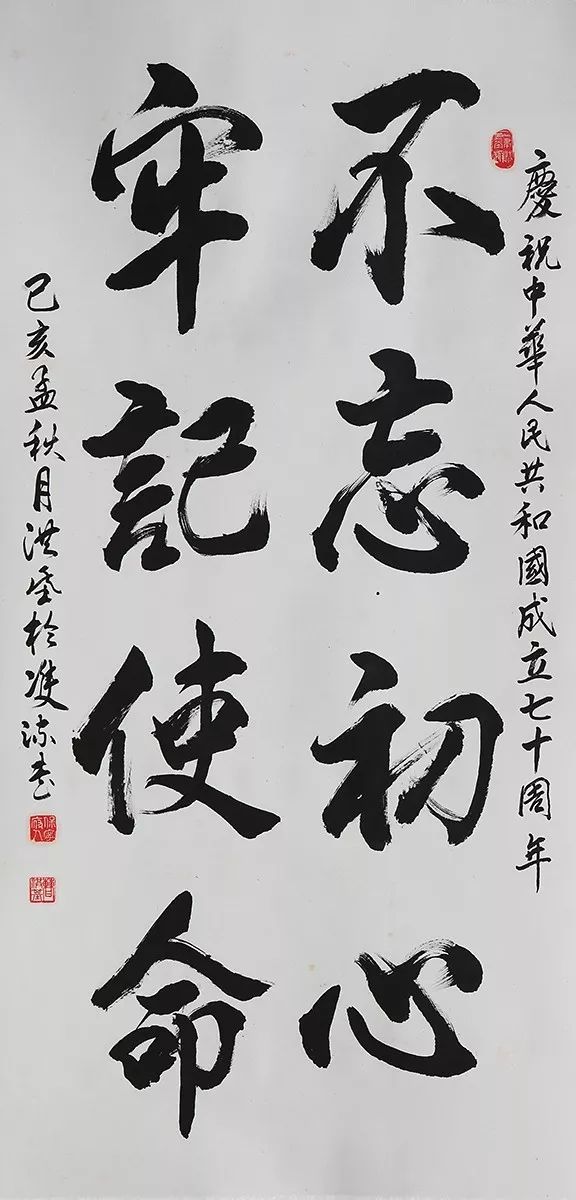 慶祝中華人民共和國成立七十周年
不忘初心
牢記使命
己亥孟秋月洪於雙流書